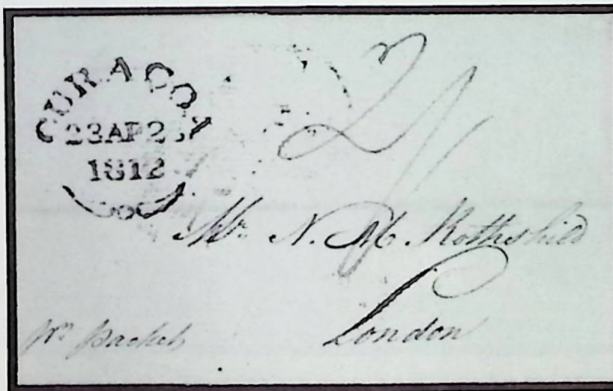 CURACOA
23AP23
1812
2/
Mr. N. M. Rothshild
London
pr. packet